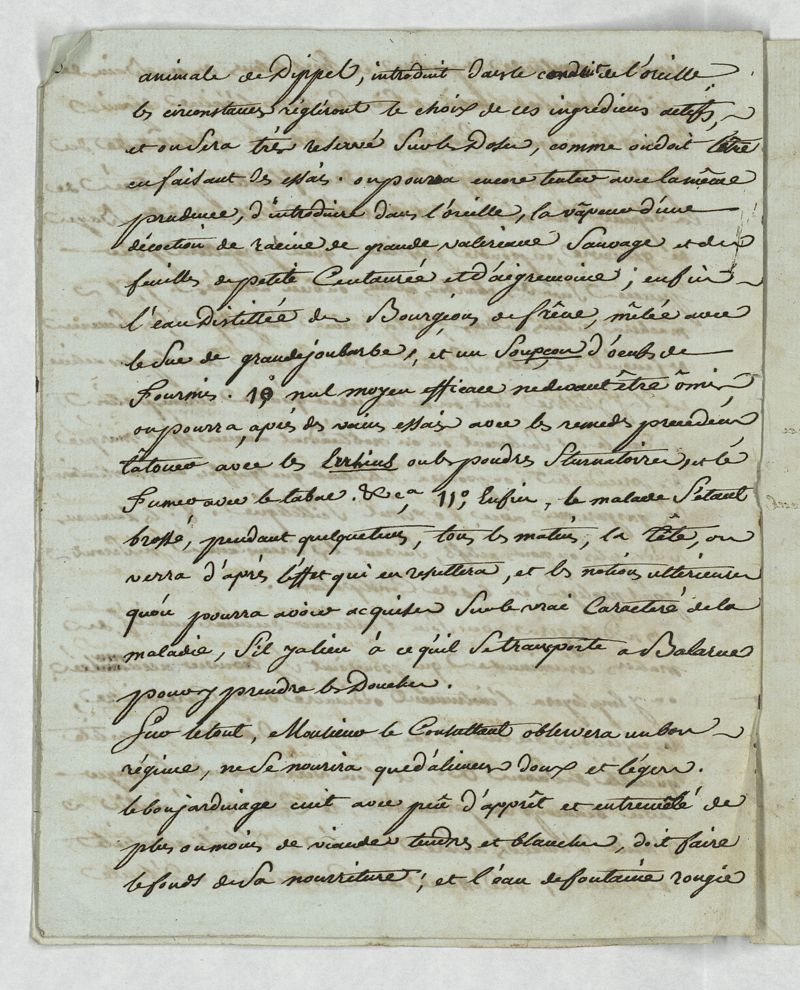 animale de Dippel, introduit dans le conduit de l'oreille
les circonstances règleront le choix de ces ingrediens actifs,
et on sera très reservé sur les doses, comme on doit l'être
en faisant des essais. on pourra encore tenter avec la même
prudence, d'introduire dans l'oreille, la vapeur d'une
décoction de racine de grande valeriane sauvage et de
feuilles de petite Centaurée et d'aigremoine; enfin
l'eau distillée de Bourgeons de frêne, mêlée avec
le suc de grande joubarbe, et un soupçon d'oeufs de
Fourmis. 10.° nul moyen efficace ne devant être ômis,
on pourra, après des vains essais avec les remedes precedens,
tâtoner avec les Errhins ou les poudres sternutatoires, et le
Fumer avec le tabac. &ca. 11.° Enfin, le malade s'étant
brossé, pendant quelque tems, tous les matins, la tête, on
verra d'après l'effet qui en resultera, et les notions ulterieures
qu'on pourra avoir acquises sur le vrai Caracteré de la
maladie, s'il y a lieu à ce qu'il se transporte a Balaruc
pour y prendre les Douches.
Sur le tout, Monsieur le Consultant observera un bon
régime, ne se nourrira que d'alimens doux et légers.
le bon jardinage cuit avec peu d'apprêt et entremêlé de
plus ou moins de viandes tendres et blanches, doit faire
le fonds de sa nourriture; et l'eau de fontaine rougie